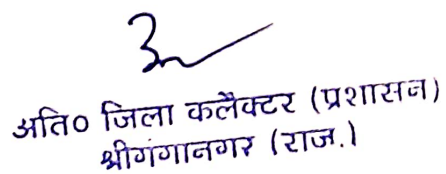 अति० जिला कलैक्टर (प्रशासन)
श्रीगंगानगर (राज.)